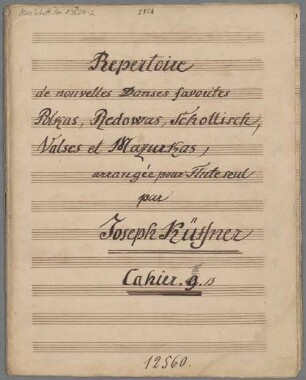 1854
Repertoire
de nouvelles Danses favorites
Polkas, Redowas, Schottisch,
Valses et Mazurkas,
arrangée pour Flute seul
par
Joseph Küffner
Cahier. 9. 13
12560.